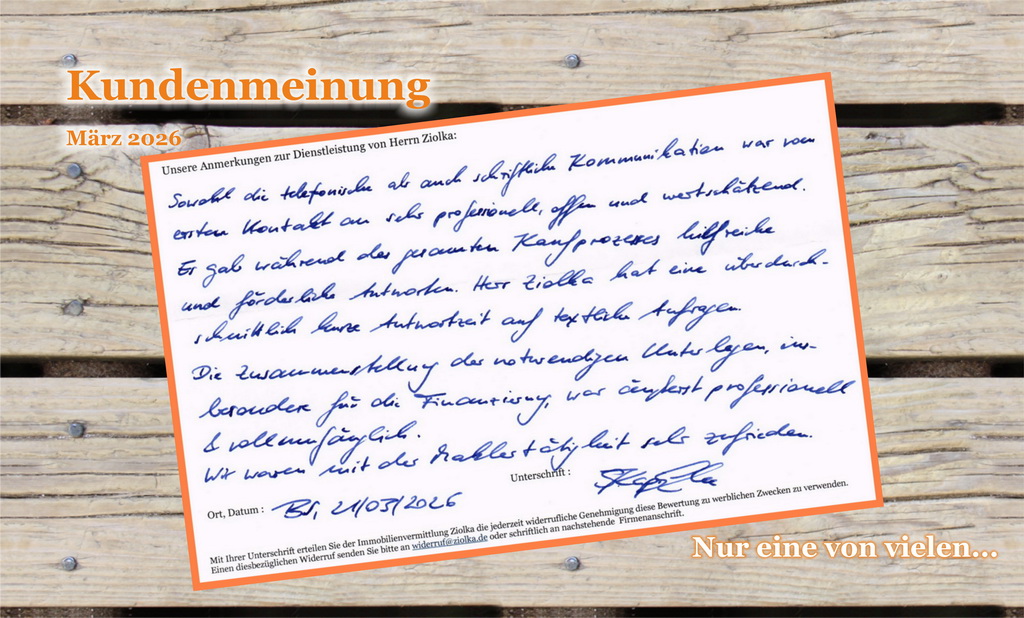 Kundenmeinung
März 2026
Unsere Anmerkungen zur Dienstleistung von Herrn Ziolka:
Sowohl die telefonische als auch schriftliche Kommunikation war vom
ersten Kontakt an sehr professionell, offen und wertschätzend.
Er gab während des gesamten Kaufprozesses hilfreiche
und förderliche Antworten. Herr Ziolka hat eine überdurch-
schnittlich kurze Antwortzeit auf textliche Anfragen.
Die Zusammenstellung der notwendigen Unterlagen, ins-
besondere für die Finanzierung, war äußerst professionell
& vollumfänglich.
Wir waren mit der Maklertätigkeit sehr zufrieden.
Ort, Datum : BS, 21/03/2026
Unterschrift :
Mit Ihrer Unterschrift erteilen Sie der Immobilienvermittlung Ziolka die jederzeit widerrufliche Genehmigung diese Bewertung zu werblichen Zwecken zu verwenden.
Einen diesbezüglichen Widerruf senden Sie bitte an widerruf@ziolka.de oder schriftlich an nachstehende Firmenanschrift.
Nur eine von vielen...